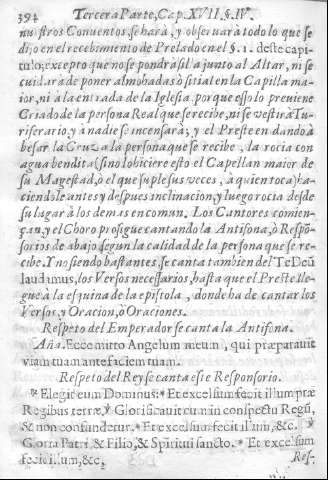 394 Tercera Parte, Cap. XVII. §. IV.
nuestros Conuentos se hará, y obseruará todo lo que se
dijo en el recebimento de Prelado en el §. 1. deste capi-
tulo, excepto que no se pondra sil a junto al Altar, ni se
cuidara de poner almohadas ò sitial en la Capilla ma-
ior, ni à la entrada de la Iglesia, porque esso lo preuiene
Criado de la persona Real que se recibe, ni se vestirà Tu-
riferario, y à nadie se incensarà; y el Preste en dando à
besar la Cruz a la persona que se recibe, la rocia con
agua bendita (sino lo hiciere esto el Capellan maior de
su Magestad, ò el que suple sus veces, à quien toca) ha-
ciendole antes y despues inclinacion, y luego rocia desde
su lugar à los demas en comun. Los Cantores comien-
çan, y el Choro prosigue cantando la Antifona, ò Respõ-
sorios de abajo segun la calidad de la persona que se re-
cibe. Y no siendo bastantes, se canta tambien del Te Deũ
laudamus, los Versos necessarios, hasta que el Preste lle-
gue à la esquina de la epistola, donde ha de cantar los
Versos, y Oracion, ò Oraciones.
Respeto del Emperador se canta la Antifona.
Aña. Ecce mitto Angelum meum, qui præparauit
viam tuam ante faciem tuam.
Respeto del Rey se canta este Responsorio.
℟ Elegit eum Dominus: * Et excelsum fecit illum præ
Regibus terræ. ℣ Glorificauit eum in conspectu Regũ,
& non confundetur. * Et excelsum fecit illum, &c. ℣
Gloria Patri, & Filio, & Spiritui sancto. * Et excelsum
fecit illum, &c, Res-